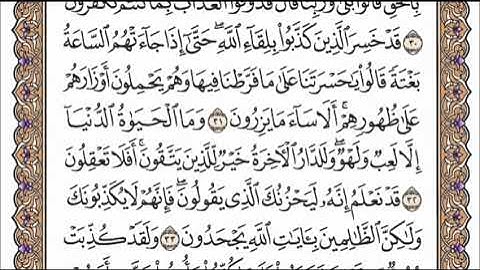 بِٱلْحَقِّ قَالُوا۟ بَلَىٰ وَرَبِّنَا قَالَ فَذُوقُوا۟ ٱلْعَذَابَ بِمَا كُنتُمْ تَكْفُرُونَ
٣٠ قَدْ خَسِرَ ٱلَّذِينَ كَذَّبُوا۟ بِلِقَآءِ ٱللَّهِ ۖ حَتَّىٰٓ إِذَا جَآءَتْهُمُ ٱلسَّاعَةُ
بَغْتَةً قَالُوا۟ يَٰحَسْرَتَنَا عَلَىٰ مَا فَرَّطْنَا فِيهَا وَهُمْ يَحْمِلُونَ أَوْزَارَهُمْ
عَلَىٰ ظُهُورِهِمْ ۚ أَلَا سَآءَ مَا يَزِرُونَ ٣١ وَمَا ٱلْحَيَوٰةُ ٱلدُّنْيَآ
إِلَّا لَعِبٌ وَلَهْوٌ ۖ وَلَلدَّارُ ٱلْءَاخِرَةُ خَيْرٌ لِّلَّذِينَ يَتَّقُونَ ۗ أَفَلَا تَعْقِلُونَ
٣٢ قَدْ نَعْلَمُ إِنَّهُۥ لَيَحْزُنُكَ ٱلَّذِى يَقُولُونَ ۖ فَإِنَّهُمْ لَا يُكَذِّبُونَكَ
وَلَٰكِنَّ ٱلظَّٰلِمِينَ بِـَٔايَٰتِ ٱللَّهِ يَجْحَدُونَ ٣٣ وَلَقَدْ كُذِّبَتْ